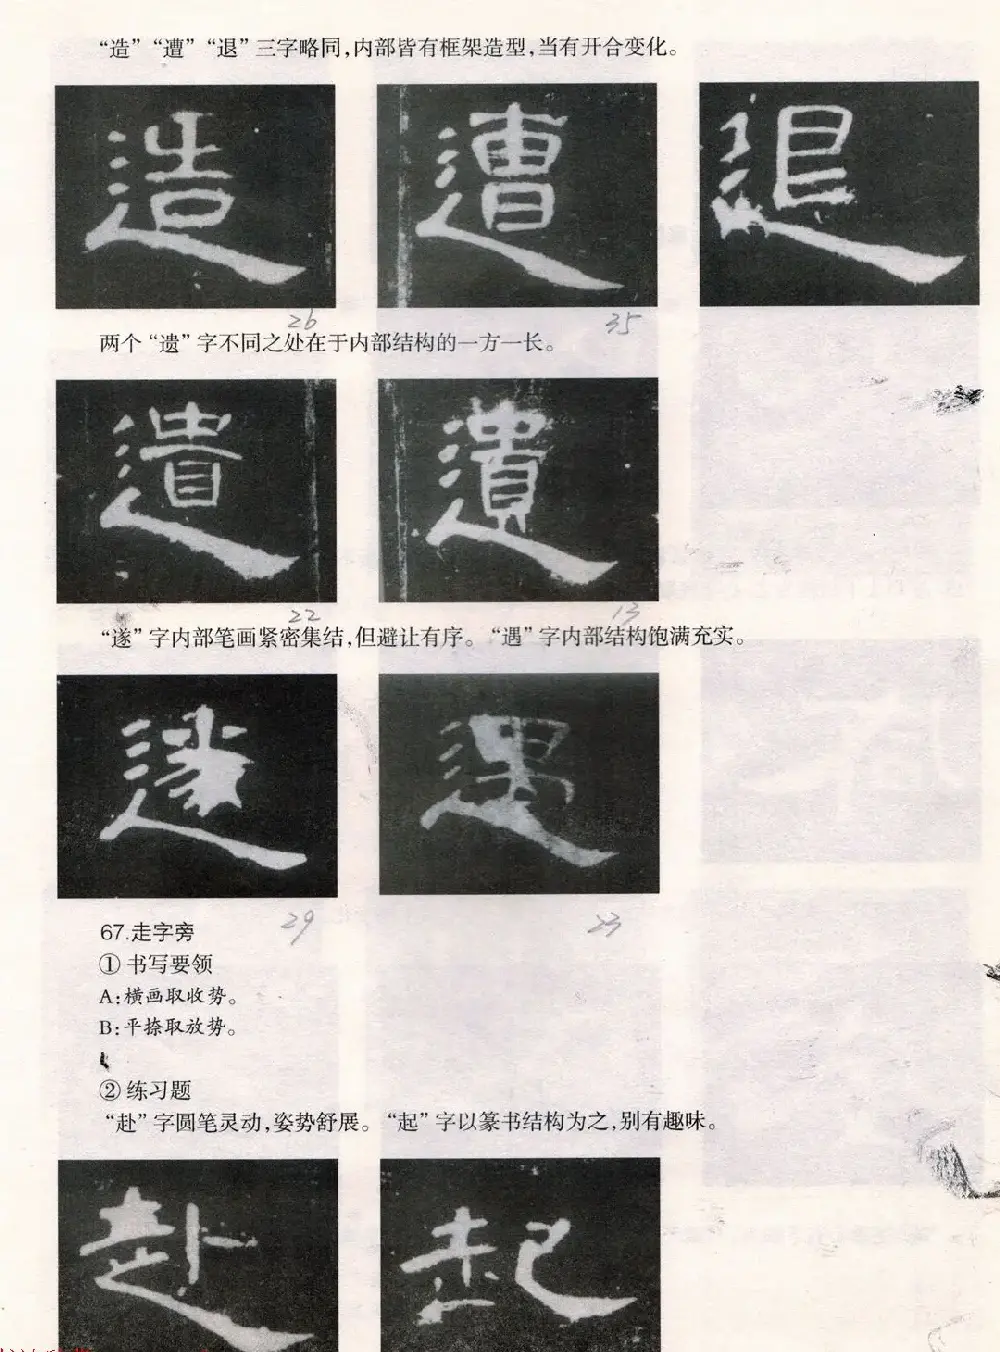 “造”“遭”“退”三字略同，内部皆有框架造型，当有开合变化。
造 遭 退
26 35
两个“遗”字不同之处在于内部结构的一方一长。
遺 遺
22 13
“遂”字内部笔画紧密集结，但避让有序。“遇”字内部结构饱满充实。
遂 遇
29 23
67.走字旁
① 书写要领
A:横画取收势。
B:平捺取放势。
② 练习题
“赴”字圆笔灵动，姿势舒展。“起”字以篆书结构为之，别有趣味。
赴 起